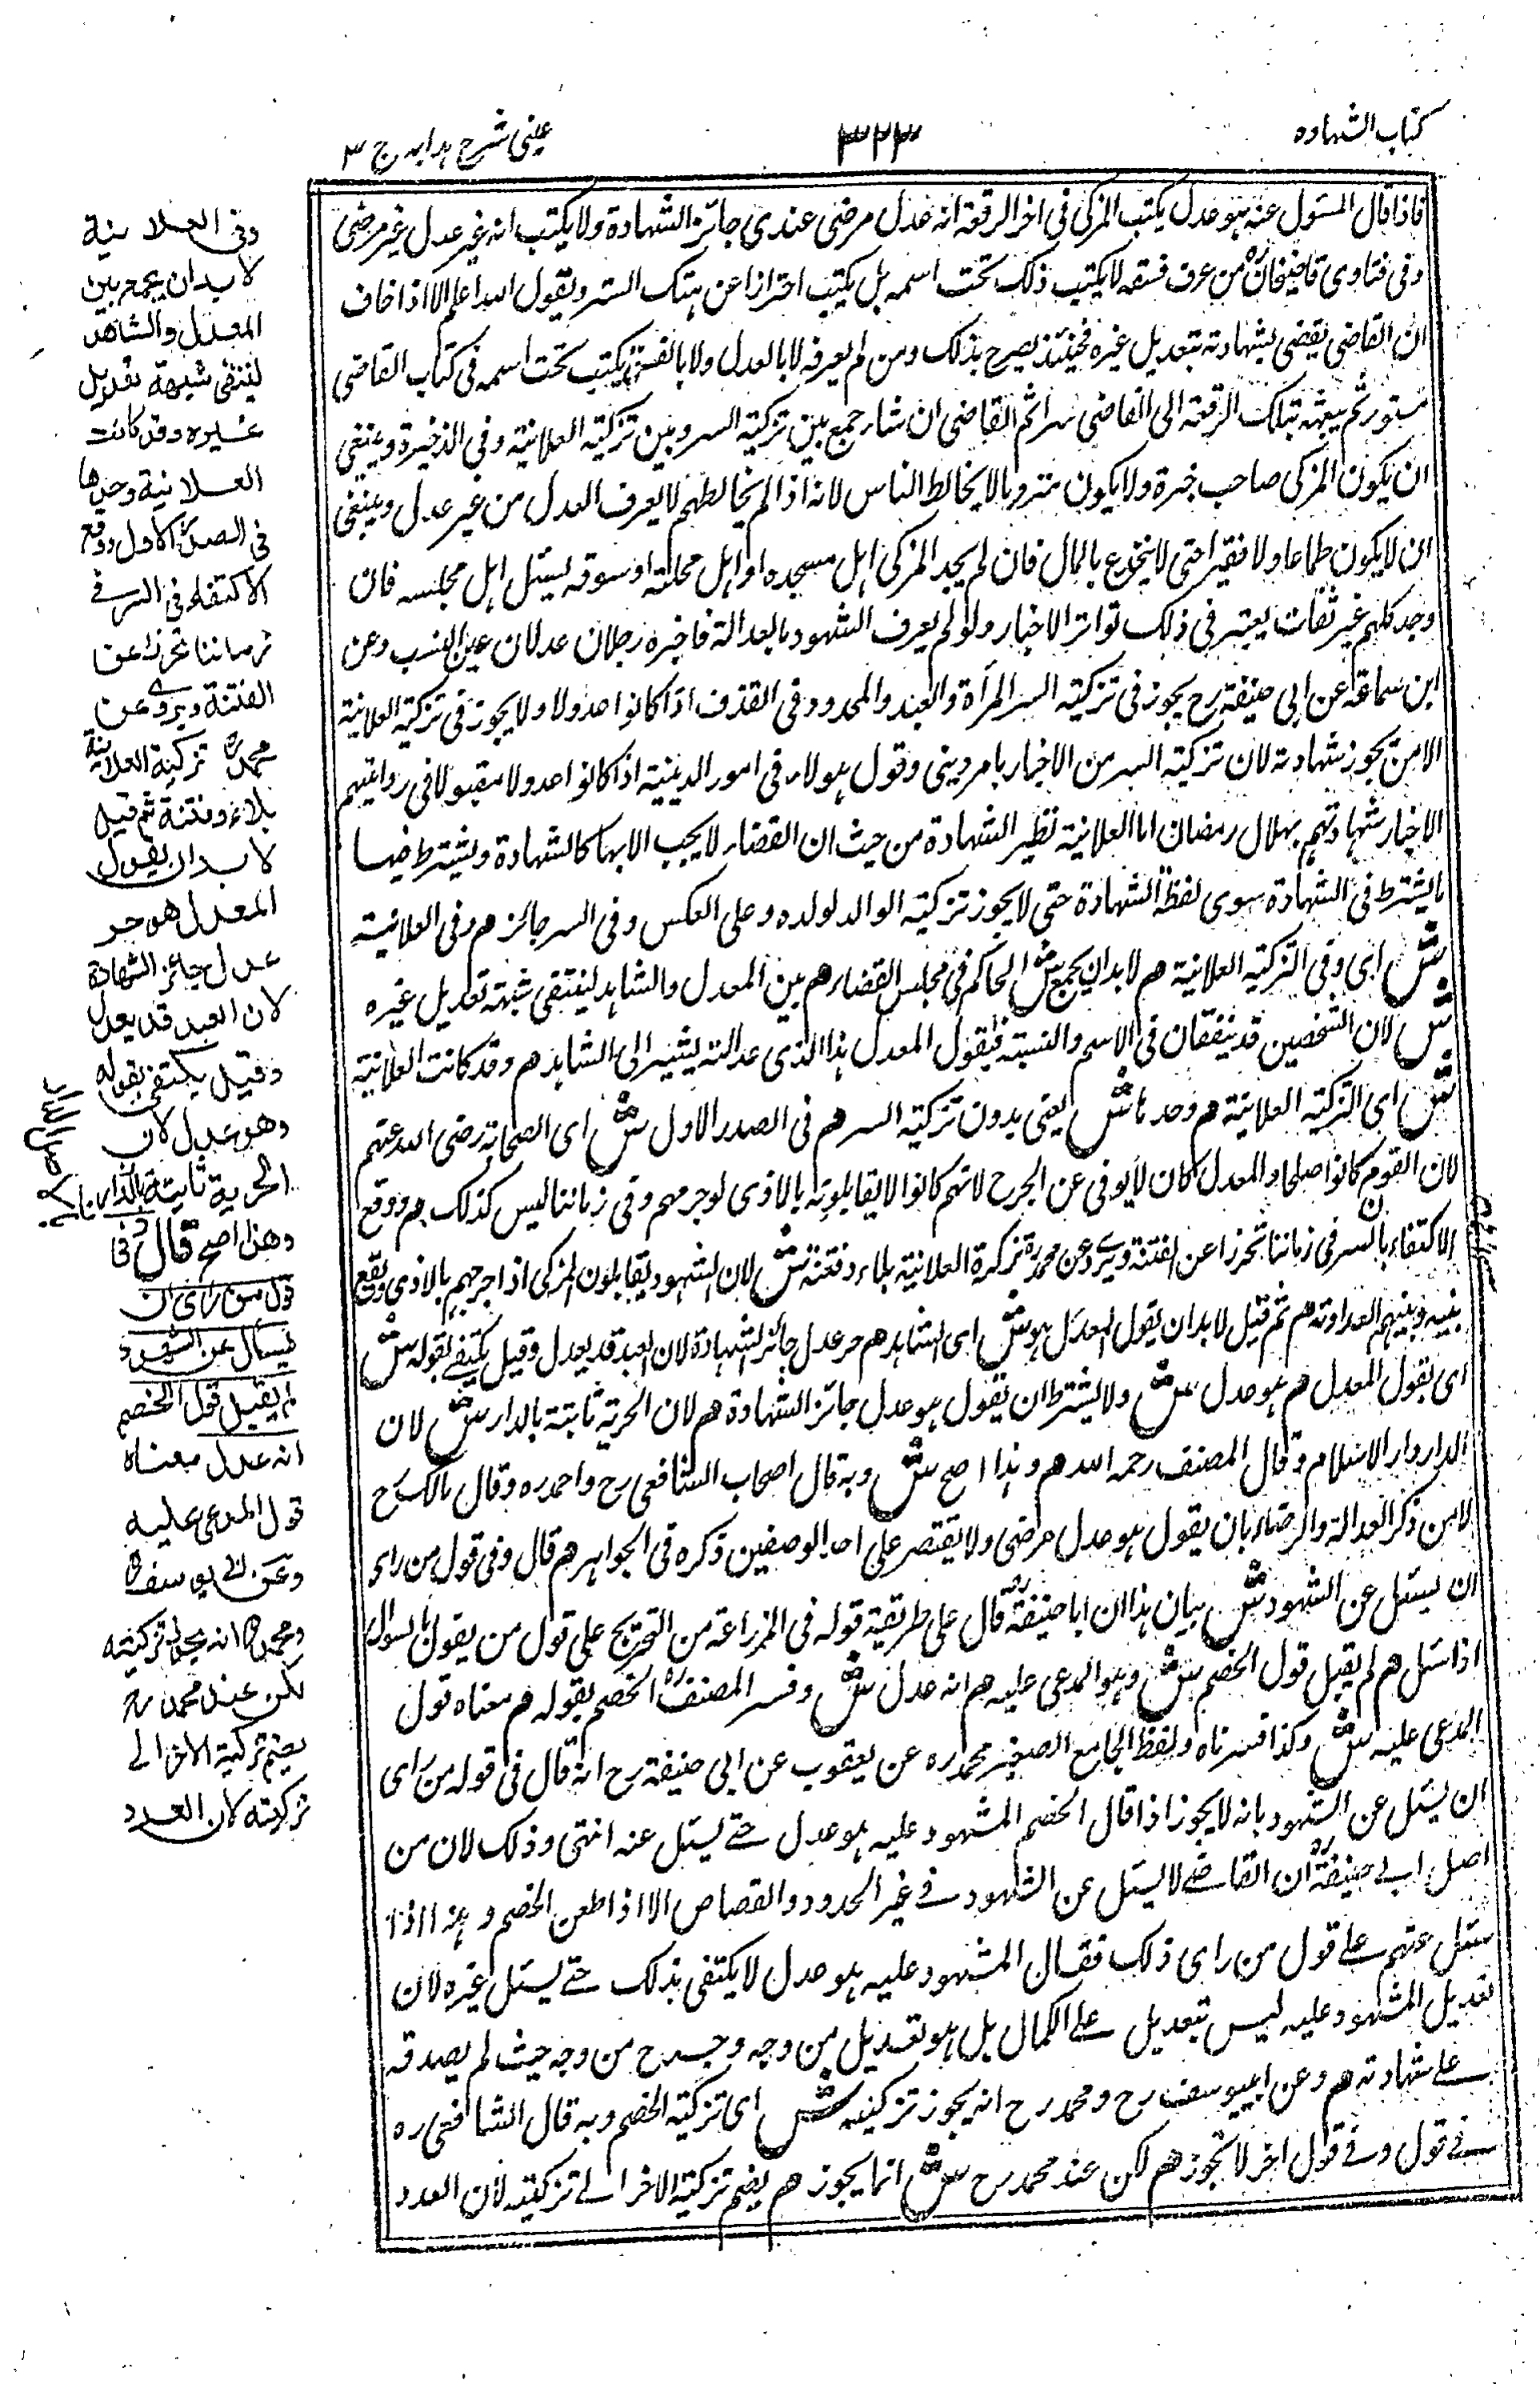 كتاب الشهاده
٣٢٣
عینی شرح ہدایہ ج ٣
فاذا قال المسئول عنه هو عدل يكتب المزكى فى اخر الرقعة انه عدل مرضى عندى جائز الشهادة ولا يكتب انه غير عدل غير مرضى
وفى فتاوى قاضيخان رہ من عرف فسقه لا يكتب ذلك تحت اسمه بل يكتب احترازا عن هتك الستر ويقول الله اعلم الا اذا خاف
ان القاضى يقضى بشهادته بتعديل غيره فحينئذ يصرح بذلك ومن لم يعرفه لا بالعدل ولا بالفسق يكتب تحت اسمه فى كتاب القاضى
مستور ثم يبعثه بتلك الرقعة الى القاضى سرا ثم القاضى ان شاء جمع بين تزكية السر وبين تزكية العلانية وفى الذخيرة وينبغى
ان يكون المزكى صاحب خبرة ولا يكون منزويا لا يخالط الناس لانه اذا لم يخالطهم لا يعرف العدل من غير عدل وينبغى
ان لا يكون طماعا ولا فقيرا حتى لا ينخدع بالمال فان لم يجد المزكى اهل مسجده او اهل محلته او سوقه يسئل اهل مجلسه فان
وجد كلهم غير ثقات يعتبر فى ذلك تواتر الاخبار ولو لم يعرف الشهود بالعدالة فاخبره رجلان عدلان عن النسب وعن
ابن سماعة عن ابى حنيفة رح يجوز فى تزكية السر المرأة والعبد والمحدود فى القذف اذا كانوا عدولا ولا يجوز فى تزكية العلانية
الا من تجوز شهادته لان تزكية السر من الاخبار بامر دينى وقول هولاء فى امور الدينية اذا كانوا عدولا مقبولا فى روايتهم
الاخبار شهادتهم بهلال رمضان اما العلانية نظير الشهادة من حيث ان القضاء لا يجب الا بها كالشهادة ويشترط فيها
ما يشترط فى الشهادة سوى لفظة الشهادة حتى لا يجوز تزكية الوالد لولده وعلى العكس وفى السر جائز هم وفى العلانية
ش اى وفى التزكية العلانية هم لا بد ان يجمع ش الحاكم فى مجلس القضاء هم بين المعدل والشاهد لينتفى شبهة تعديل غيره
ش لان الشخصين قد يتفقان فى الاسم والنسبة فيقول المعدل هذا الذى عدالته يشير الى الشاهد هم وقد كانت العلانية
ش اى التزكية العلانية هم وحدها ش يعنى بدون تزكية السر هم فى الصدر الاول ش اى الصحابة رضى الله عنهم
لان القوم كانوا صلحاء والمعدل كان لا يوقى عن الجرح لانهم كانوا لا يقابلونه بالاذى لو جرحهم وفى زماننا ليس كذلك هم ووقع
الاكتفاء بالسر فى زماننا تحرزا عن الفتنة ويروى عن محمد رہ تزكية العلانية بلاء وفتنة ش لان الشهود يقابلون المزكى اذا جرحهم بالاذى ويقع
بينه وبينهم العداوة هم ثم قيل لا بد ان يقول المعدل هو ش اى الشاهد هم حر عدل جائز الشهادة لان العبد قد يعدل وقيل يكتفى بقوله ش
اى بقول المعدل هم هو عدل ش ولا يشترط ان يقول هو عدل جائز الشهادة هم لان الحرية ثابتة بالدار ش لان
الدار دار الاسلام وقال المصنف رحمه الله هم وهذا اصح ش وبه قال اصحاب الشافعى رح واحمد رہ وقال مالك رح
لا من ذكر العدالة والرضاء بان يقول هو عدل مرضى ولا يقتصر على احد الوصفين ذكره فى الجواهر هم قال وفى قول من راى
ان يسئل عن الشهود ش بيان هذا ان ابا حنيفة رہ قال على طريقة قوله فى المزارعة من التخريج على قول من يقول بالسوال
اذا سئل هم لم يقبل قول الخصم ش وهو المدعى عليه هم انه عدل ش وفسر المصنف رہ الخصم بقوله هم معناه قول
المدعى عليه ش وكذا فسرناه ولفظ الجامع الصغير محمد رہ عن يعقوب عن ابى حنيفة رح انه قال فى قوله من راى
ان يسئل عن الشهود بانه لا يجوز اذا قال الخصم المشهود عليه هو عدل حتى يسئل عنه انتهى وذلك لان من
اصل ابى حنيفة رہ ان القاضى لا يسئل عن الشهود فى غير الحدود والقصاص الا اذا طعن الخصم وهذا اذا
سئل عنهم على قول من راى ذلك فقال المشهود عليه هو عدل لا يكتفى بذلك حتى يسئل غيره لان
تعديل المشهود عليه ليس بتعديل على الكمال بل هو تعديل من وجه وجرح من وجه حيث لم يصدقه
على شهادته هم وعن ابييوسف رح ومحمد رح انه يجوز تزكيته ش اى تزكية الخصم وبه قال الشافعى رہ
فى قول وفى قول اخر لا تجوز هم لكن عند محمد رح ش انما يجوز هم يضم تزكية الاخر الى تزكيته لان العدد
وفى العلانية
لا بد ان يجمع بين
المعدل والشاهد
لينتفى شبهة تعديل
غيره وقد كانت
العلانية وحدها
فى الصدر الاول ووقع
الاكتفاء فى السر فى
زماننا تحرزا عن
الفتنة ويروى عن
محمد رہ تزكية العلانية
بلاء وفتنة ثم قيل
لا بد ان يقول
المعدل هو حر
عدل جائز الشهادة
لان العبد قد يعدل
وقيل يكتفى بقوله
وهو عدل لان
الحرية ثابتة بالدار
وهذا اصح قال وفى
قول من راى ان
يسأل عن الشهود
لم يقبل قول الخصم
انه عدل معناه
قول المدعى عليه
وعن ابى يوسف رہ
ومحمد رہ انه يجوز تزكيته
لكن عند محمد رہ
يضم تزكية الاخر الى
تزكيته لان العدد